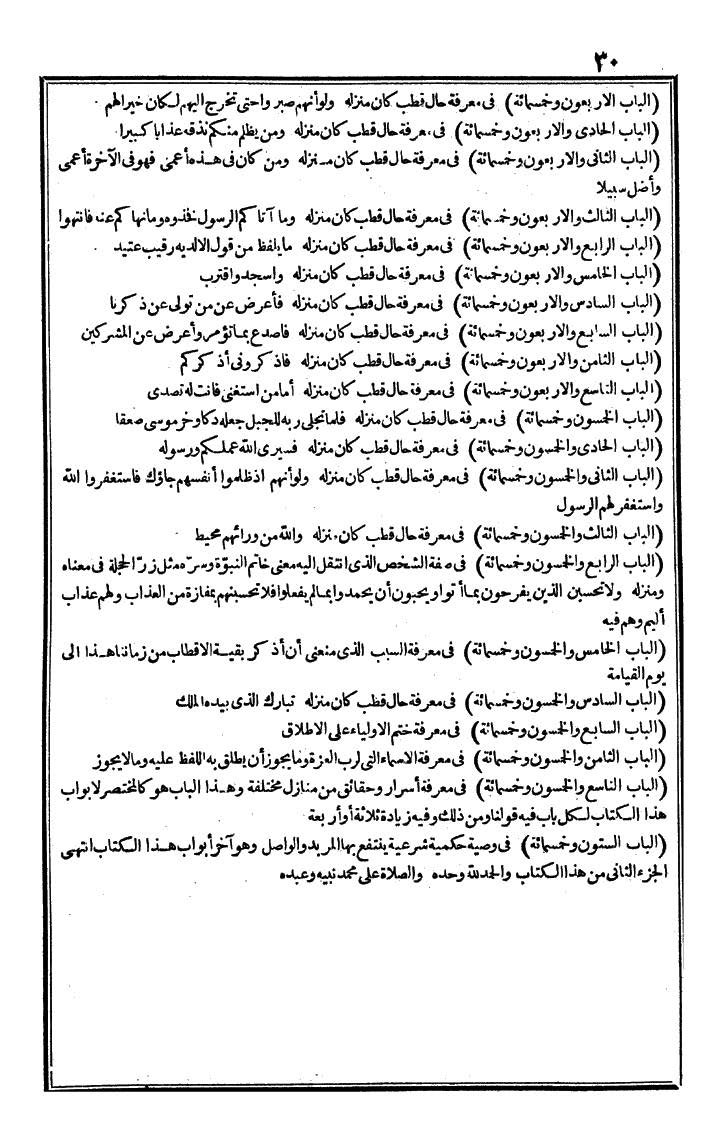 ٣٠
(الباب الاربعون وخمسمائة) فى معرفة حال قطب كان منزله ولو أنهم صبروا حتى تخرج اليهم لكان خيرا لهم
(الباب الحادى والاربعون وخمسمائة) فى معرفة حال قطب كان منزله ومن يظلم منكم نذقه عذابا كبيرا
(الباب الثانى والاربعون وخمسمائة) فى معرفة حال قطب كان منزله ومن كان فى هذه أعمى فهو فى الآخرة أعمى
وأضل سبيلا
(الباب الثالث والاربعون وخمسمائة) فى معرفة حال قطب كان منزله وما آتاكم الرسول فخذوه ومانهاكم عنه فانتهوا
(الباب الرابع والاربعون وخمسمائة) فى معرفة حال قطب كان منزله ما يلفظ من قول الا لديه رقيب عتيد
(الباب الخامس والاربعون وخمسمائة) فى معرفة حال قطب كان منزله واسجد واقترب
(الباب السادس والاربعون وخمسمائة) فى معرفة حال قطب كان منزله فأعرض عن من تولى عن ذكرنا
(الباب السابع والاربعون وخمسمائة) فى معرفة حال قطب كان منزله فاصدع بما تؤمر وأعرض عن المشركين
(الباب الثامن والاربعون وخمسمائة) فى معرفة حال قطب كان منزله فاذكرونى أذكركم
(الباب التاسع والاربعون وخمسمائة) فى معرفة حال قطب كان منزله أما من استغنى فانت له تصدى
(الباب الخسون وخمسمائة) فى معرفة حال قطب كان منزله فلما تجلى ربه للجبل جعله دكا وخر موسى صعقا
(الباب الحادى والخسون وخمسمائة) فى معرفة حال قطب كان منزله فسيرى الله عملكم ورسوله
(الباب الثانى والخسون وخمسمائة) فى معرفة حال قطب كان منزله ولو أنهم اذ ظلموا أنفسهم جاؤك فاستغفروا الله
واستغفر لهم الرسول
(الباب الثالث والخسون وخمسمائة) فى معرفة حال قطب كان منزله والله من ورائهم محيط
(الباب الرابع والخسون وخمسمائة) فى صفة الشخص الذى انتقل اليه معنى خاتم النبوّة وسرّه مثل زرّ الحجلة فى معناه
ومنزله ولا تحسبن الذين يفرحون بما أتوا ويحبون أن يحمدوا بما لم يفعلوا فلا تحسبنهم بمفازة من العذاب ولهم عذاب
أليم وهم فيه
(الباب الخامس والخسون وخمسمائة) فى معرفة السبب الذى منعنى أن أذكر بقية الاقطاب من زماننا هذا الى
يوم القيامة
(الباب السادس والخسون وخمسمائة) فى معرفة حال قطب كان منزله تبارك الذى بيده الملك
(الباب السابع والخسون وخمسمائة) فى معرفة ختم الاولياء على الاطلاق
(الباب الثامن والخسون وخمسمائة) فى معرفة الاسماء التى لرب العزة وما يجوز أن يطلق به اللفظ عليه ومالا يجوز
(الباب التاسع والخسون وخمسمائة) فى معرفة أسرار وحقائق من منازل مختلفة وهذا الباب هو كالمختصر لابواب
هذا الكتاب لكل باب فيه قولنا ومن ذلك وفيه زيادة ثلاثة أو أربعة
(الباب الستون وخمسمائة) فى وصية حكمية شرعية ينتفع بها المريد والواصل وهو آخر أبواب هذا الكتاب انتهى
الجزء الثانى من هذا الكتاب والحمد لله وحده والصلاة على محمد نبيه وعبده